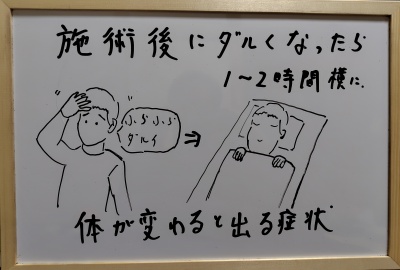 施術後にダルくなったら
1〜2時間横に.
ふらふら
ダルイ
体が変わると出る症状